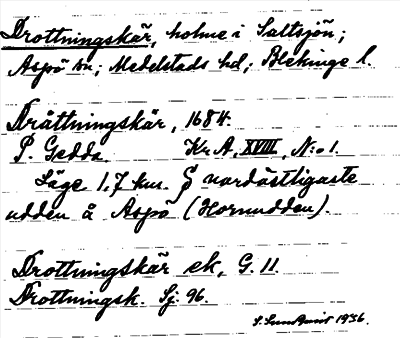 Drottningskär, holme i Saltsjön;
Aspö sn; Medelstads hd; Blekinge l.
Dråttningskär, 1684.
P. Gedda. Kr.A, XVIII, N:o 1.
Läge 1,7 km. S nordöstligaste
udden å Aspö (Hornudden).
Drottningskär ek, G. 11.
Drottningsk. Sj. 96.
S. Sundquist 1936.